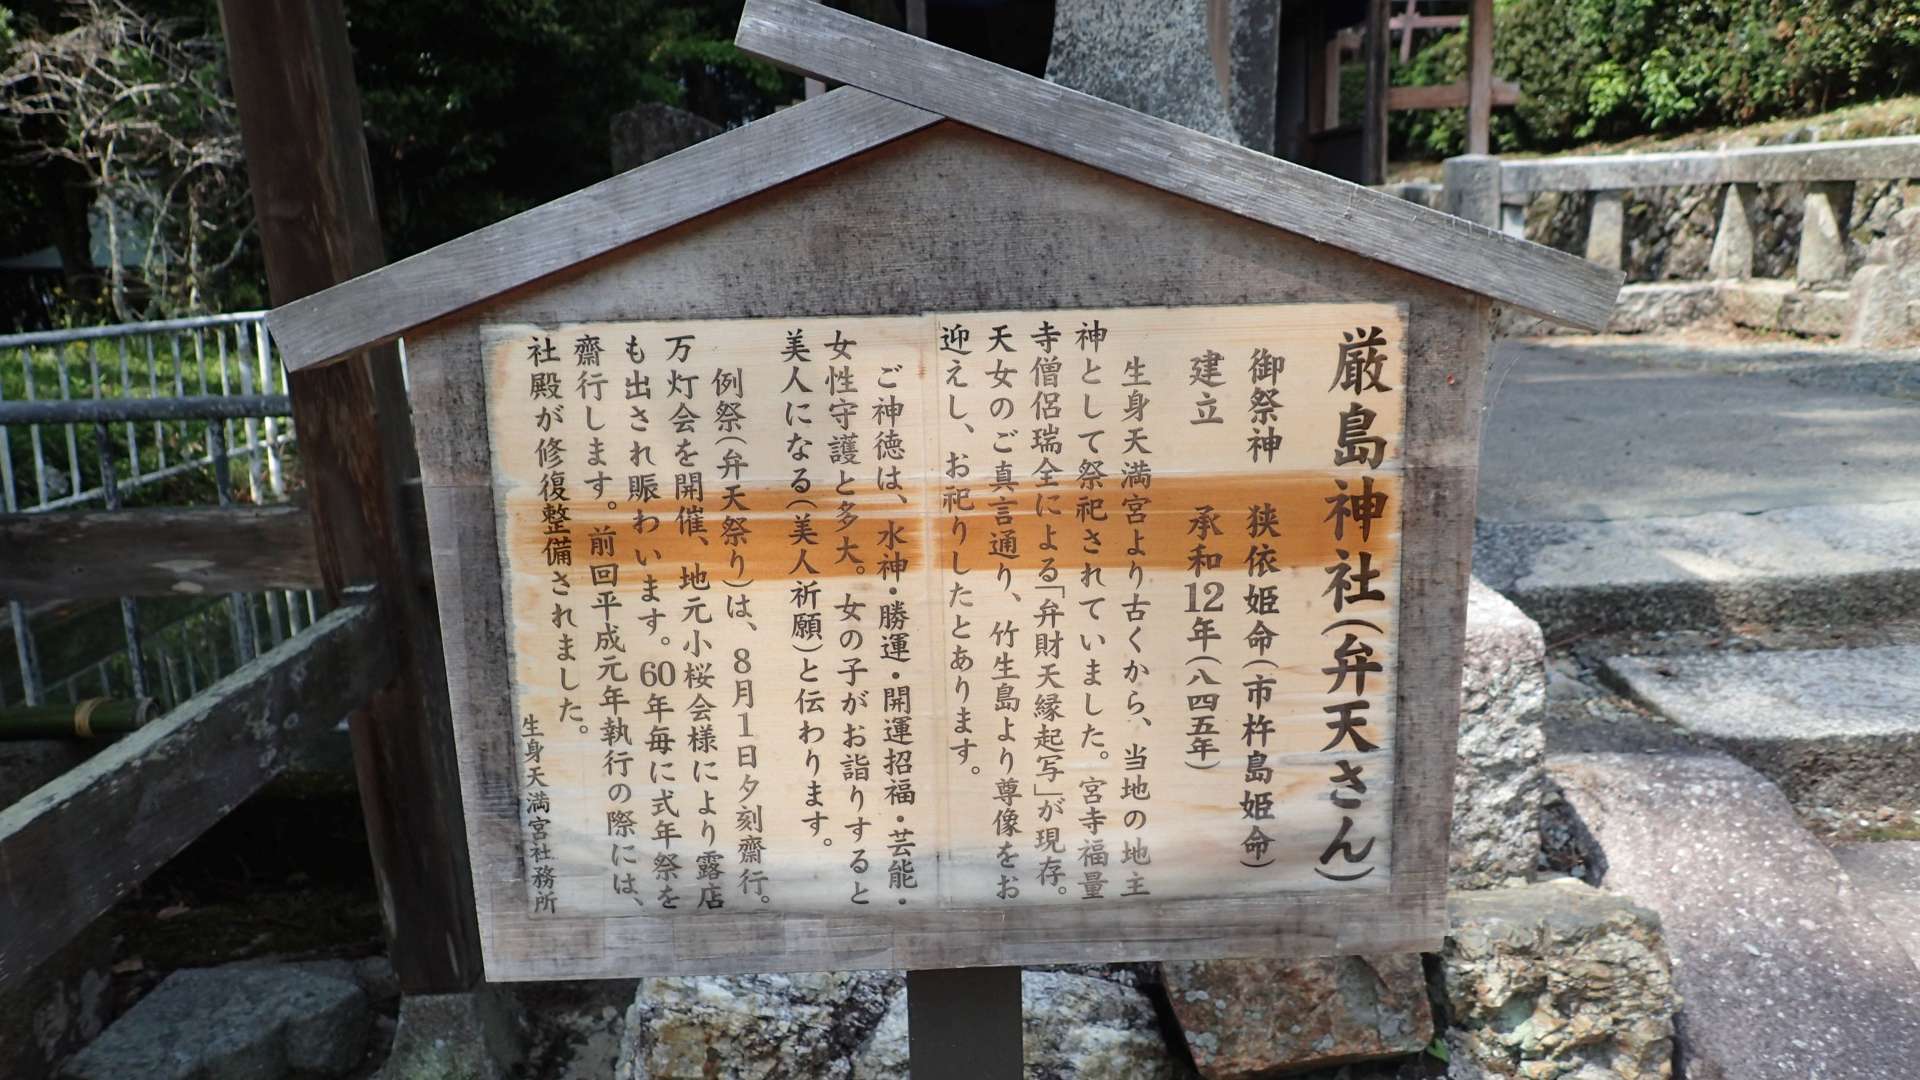 厳島神社(弁天さん)
御祭神　狭依姫命(市杵島姫命)
建立　承和12年(八四五年)
生身天満宮より古くから、当地の地主
神として祭祀されていました。宮寺福量
寺僧侶瑞全による「弁財天縁起写」が現存。
天女のご真言通り、竹生島より尊像をお
迎えし、お祀りしたとあります。
ご神徳は、水神・勝運・開運招福・芸能・
女性守護と多大。女の子がお詣りすると
美人になる(美人祈願)と伝わります。
例祭(弁天祭り)は、8月1日夕刻齋行。
万灯会を開催、地元小桜会様により露店
も出され賑わいます。60年毎に式年祭を
齋行します。前回平成元年執行の際には、
社殿が修復整備されました。
生身天満宮社務所